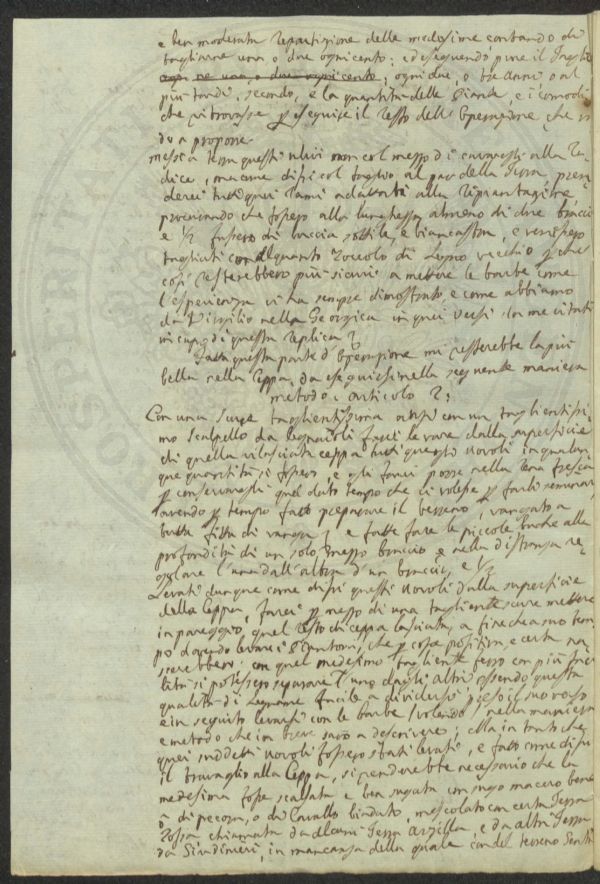 e ben moderata repartizione delle medesime contando di
tagliarne una o due ogni cento; ed eseguendo pure il taglio
ogni ne una, o due ogni cento, ogni due, o tre anni o al
più tardi, secondo, e la quantità delle Piante, e i comodi
che si trovasse p eseguire il resto dell'Operazione, che vi
do a proporre.
messi a terra questi ulivi non col mezzo di cavargli alla ra-
dice, ma come dissi col taglio al pari della Terra, pren-
derei tutti quei rami adattati alla ripiantagione
procurando che fossero alla lunghezza almeno di due braccia
e 1/2 fussero di buccia sottile, e biancastra, e venissero
tagliati con alquanto zoccolo di Legno vecchio p che
così resterebbero più sicuri a mettere le barbe come
l'esperienza ci ha sempre dimostrato, e come abbiamo
da Virgilio nella Georgica in quei versi da me citati
in capo di questa replica.
Fatta questa parte d'Operazione mi resterebbe la più
bella nella Ceppa, da eseguirsi nella seguente maniera
metodo: articolo 2:
Con una scure taglientissima ossia con un taglientissi-
mo scalpello da legnaioli farei levare dalla superficie
di quella rilasciata ceppa tutti quegli uovoli in qualun-
que quantità si fossero, e gli farei porre nella terra fresca
p conservargli quel dato tempo che ci volesse p farli seminare
avendo p tempo fatto preparare il terreno, vangato a
tutta fitta di vanga, e fatte fare le piccole buche alla
profondità di un solo mezzo braccio e nella distanza re-
golare l'una dall'altra d'un braccio, e 1/2
Levati dunque come dissi questi uovoli dalla superficie
della Ceppa, farei p mezzo di una tagliente scure mettere
in pareggio, quel resto di ceppa lasciata, a fine che a suo tem-
po dovendo levarci i Piantoni, che p cosa positiva, e certa na-
scerebbero: con quel medesimo tagliente ferro con più faci-
lità si potessero separare l'uno dagli altri essendo questa
qualità di legname facile a dividersi preso il suo verso
e in seguito levarsi con le barbe (volendo) nella maniera
e metodo che in breve sarò a descrivere; ella intanto che
quei suddetti uovoli fossero stati levati, e fatto come dissi
il travaglio alla Ceppa, si renderebbe necessario che la
medesima fosse scalzata e ben sugata con sugo macero bene
o di pecora, o di Cavallo tinduto, mescolato con certa Terra
rossa chiamata da alcuni Terra Argilla, e da altri Terra
da Giardinieri, in mancanza della quale con del terreno